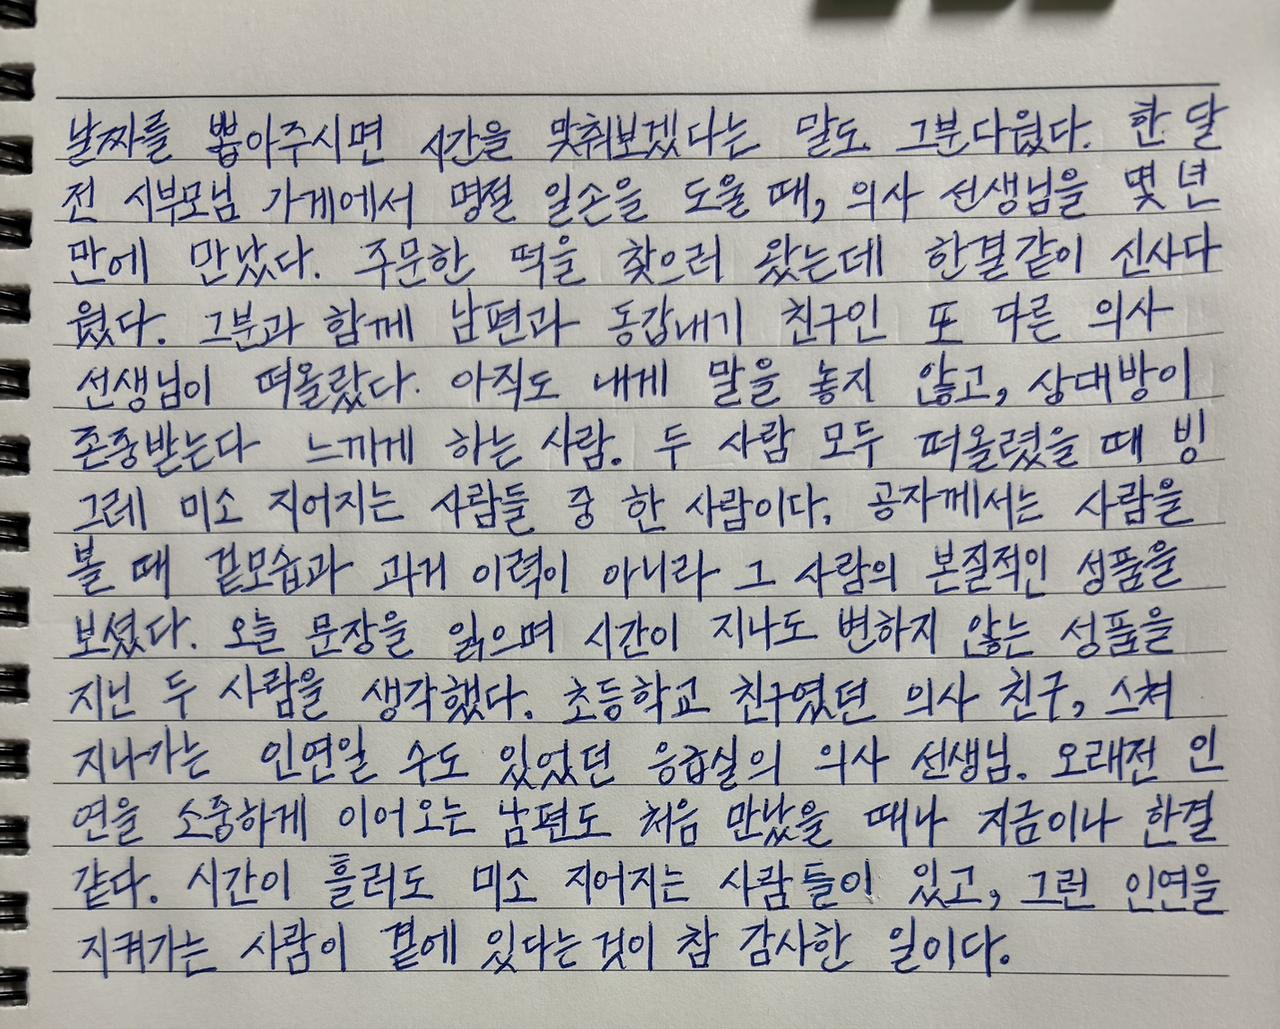 날짜를 뽑아주시면 시간을 맞춰보겠다는 말도 그분다웠다. 한 달
전 시부모님 가게에서 명절 일손을 도울 때, 의사 선생님을 몇 년
만에 만났다. 주문한 떡을 찾으러 왔는데 한결같이 신사다
웠다. 그분과 함께 남편과 동갑내기 친구인 또 다른 의사
선생님이 떠올랐다. 아직도 내게 말을 놓지 않고, 상대방이
존중받는다 느끼게 하는 사람. 두 사람 모두 떠올렸을 때 빙
그레 미소 지어지는 사람들 중 한 사람이다. 공자께서는 사람을
볼 때 겉모습과 과거 이력이 아니라 그 사람의 본질적인 성품을
보셨다. 오늘 문장을 읽으며 시간이 지나도 변하지 않는 성품을
지닌 두 사람을 생각했다. 초등학교 친구였던 의사 친구, 스쳐
지나가는 인연일 수도 있었던 응급실의 의사 선생님. 오래전 인
연을 소중하게 이어오는 남편도 처음 만났을 때나 지금이나 한결
같다. 시간이 흘러도 미소 지어지는 사람들이 있고, 그런 인연을
지켜가는 사람이 곁에 있다는 것이 참 감사한 일이다.